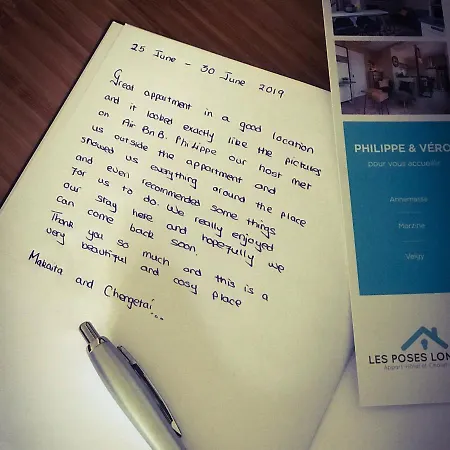 25 June - 30 June 2019
Great appartment in a good location
and it looked exactly like the pictures
on Air BnB. Philippe our host met
us outside the appartment and
showed us everything around the place
and even recommended some things
for us to do. We really enjoyed
our stay here and hopefully we
can come back soon.
Thank you so much and this is a
very beautiful and cosy place
Makaita and Chengetai...
PHILIPPE & VÉRO
pour vous accueillir
Annemasse
Morzine
Veigy
LES POSES LON